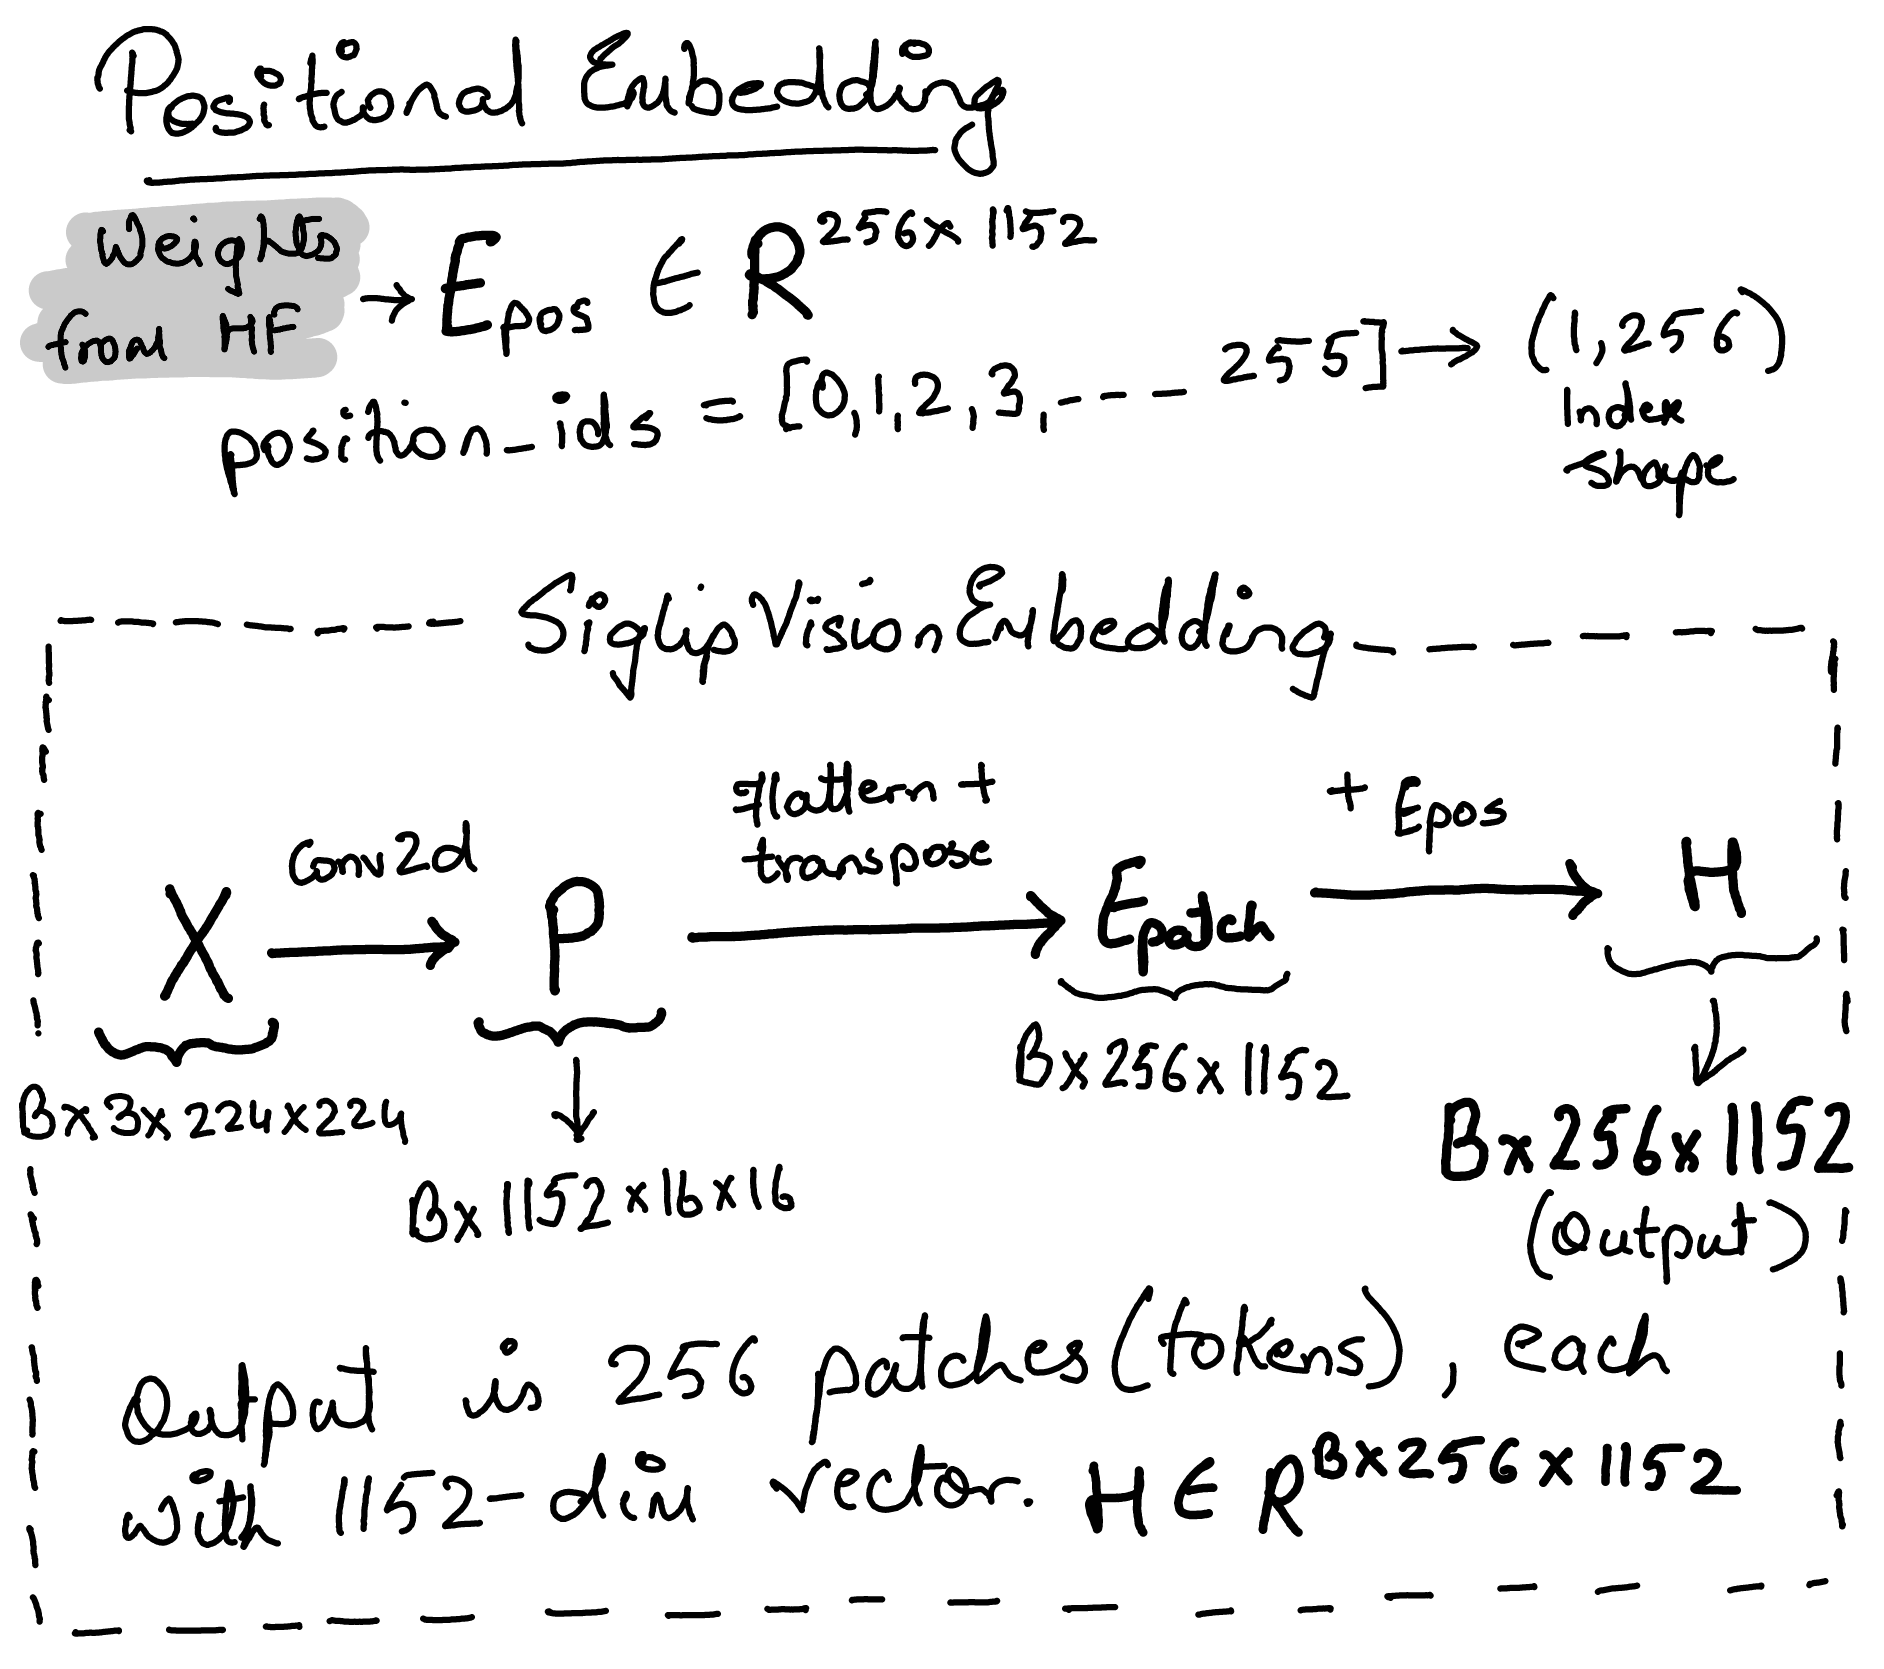 Positional Embedding
Weights
from HF
→ Epos ∈ R^256x1152
position_ids = [0,1,2,3,---- 255] → (1,256)
Index
shape
SiglipVisionEmbedding
Conv2d
Flattern +
transpose
+ Epos
X → P → Epatch → H
Bx3x224x224
Bx1152x16x16
Bx256x1152
Bx256x1152
(Output)
Output is 256 patches (tokens), each
with 1152-dim vector. H ∈ R^Bx256x1152